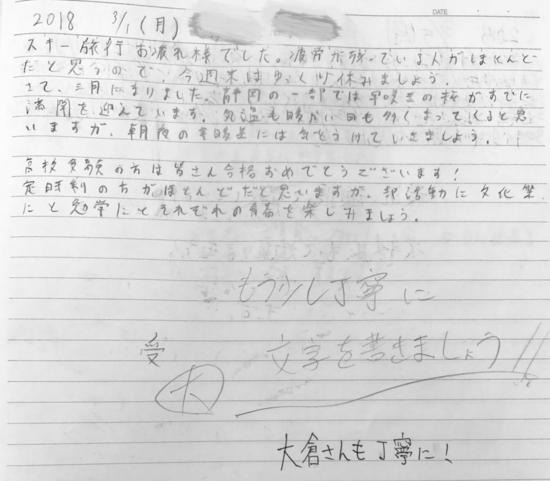 DATE
2018 3/1 (月)
スキー旅行お疲れ様でした。疲労が残っている人がほとんど
だと思うので、今週末はゆっくり休みましょう。
さて、三月になりました。静岡の一部では早咲きの桜がすでに
満開を迎えています。気温も暖かい日も多くなってくると思
いますが、朝夜の寒暖差には気をつけていきましょう。
高校受験の方は皆さん合格おめでとうございます!
定時制の方がほとんどだと思いますが、部活動に文化祭
にと勉学にとそれぞれの青春を楽しみましょう。
もう少し丁寧に
文字を書きましょう!!
受
大
大倉さんも丁寧に!